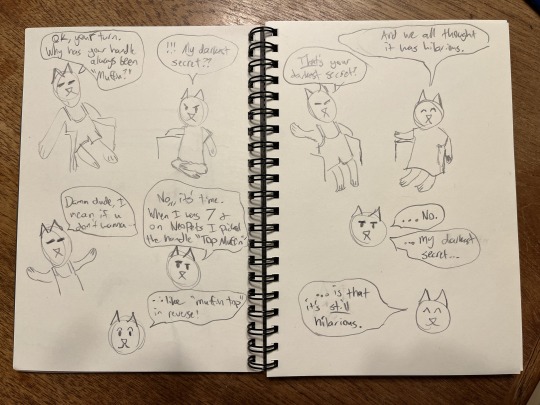 Ok, your turn.
Why has your handle
always been
"Muffin?"
!!! My darkest
secret??
Damn dude, I
mean if u
don't wanna...
No,, it's time.
When I was 7 &
on NeoPets I picked
the handle "Top Muffin"
...like "muffin top"
in reverse!
That's your
darkest secret?
And we all thought
it was hilarious.
...No.
...My darkest
secret...
...is that
it's still
hilarious.